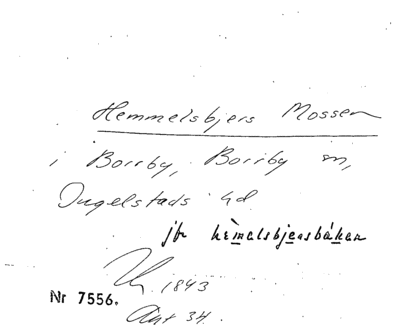 Hemmelsbjers Mossen
i Borrby, Borrby sn,
Ingelstads hd
jfr hèmelsbjersbákan
1843
Nr 7556.
Akt 34.